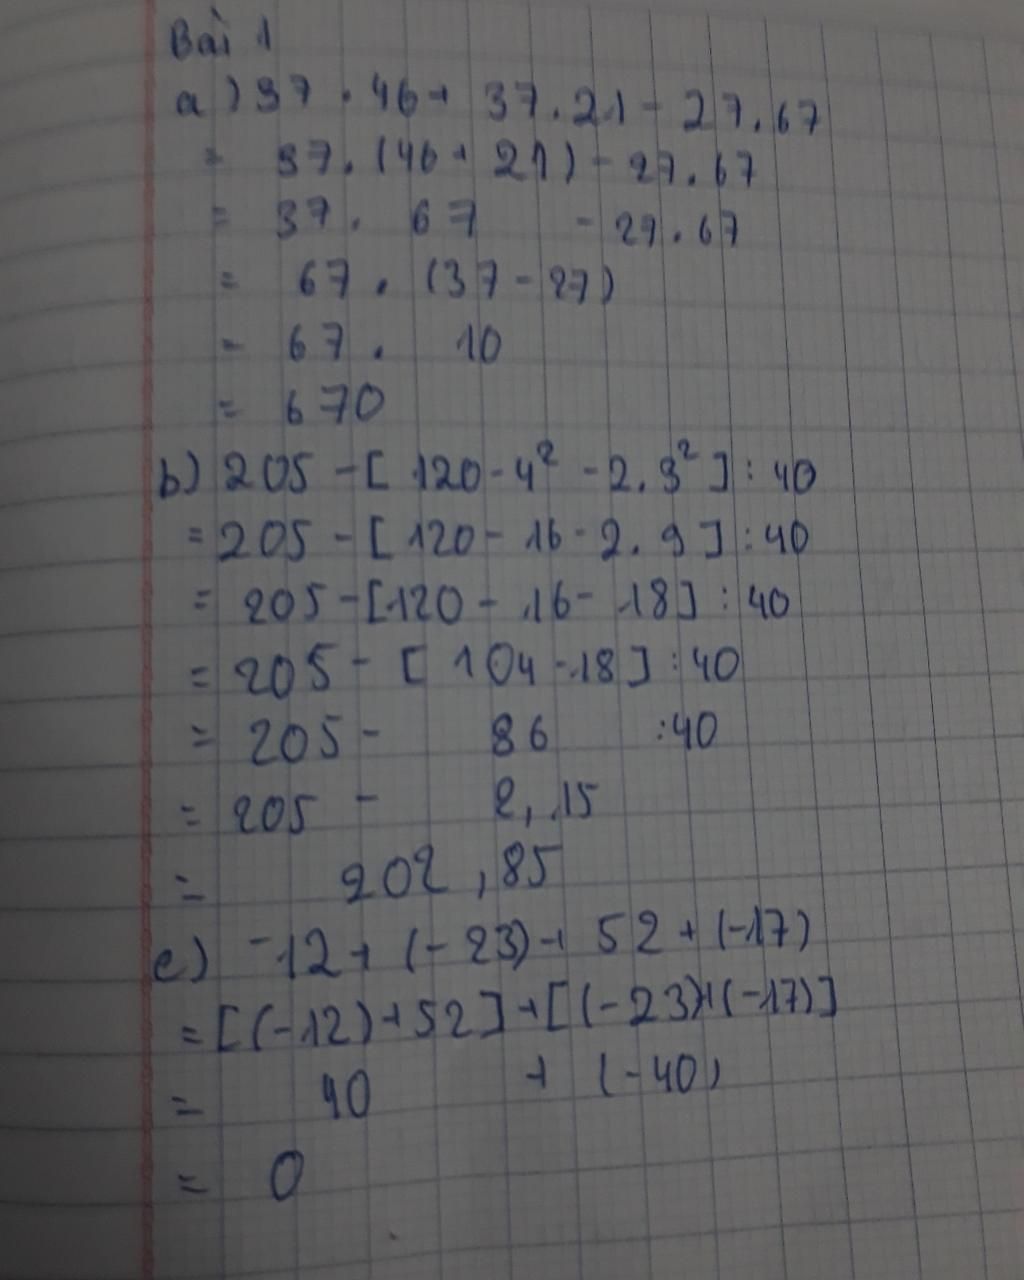 Bài 1
a) 37 . 46 + 37 . 21 - 27 . 67
= 37 . (46 + 21) - 27 . 67
= 37 . 67 - 27 . 67
= 67 . (37 - 27)
= 67 . 10
= 670
b) 205 - [ 120 - 4² - 2 . 3² ] : 40
= 205 - [ 120 - 16 - 2 . 9 ] : 40
= 205 - [120 - 16 - 18] : 40
= 205 - [ 104 - 18 ] : 40
= 205 - 86 : 40
= 205 - 2,15
= 202,85
c) -12 + (-23) + 52 + (-17)
= [(-12) + 52] + [(-23) + (-17)]
= 40 + (-40)
= 0